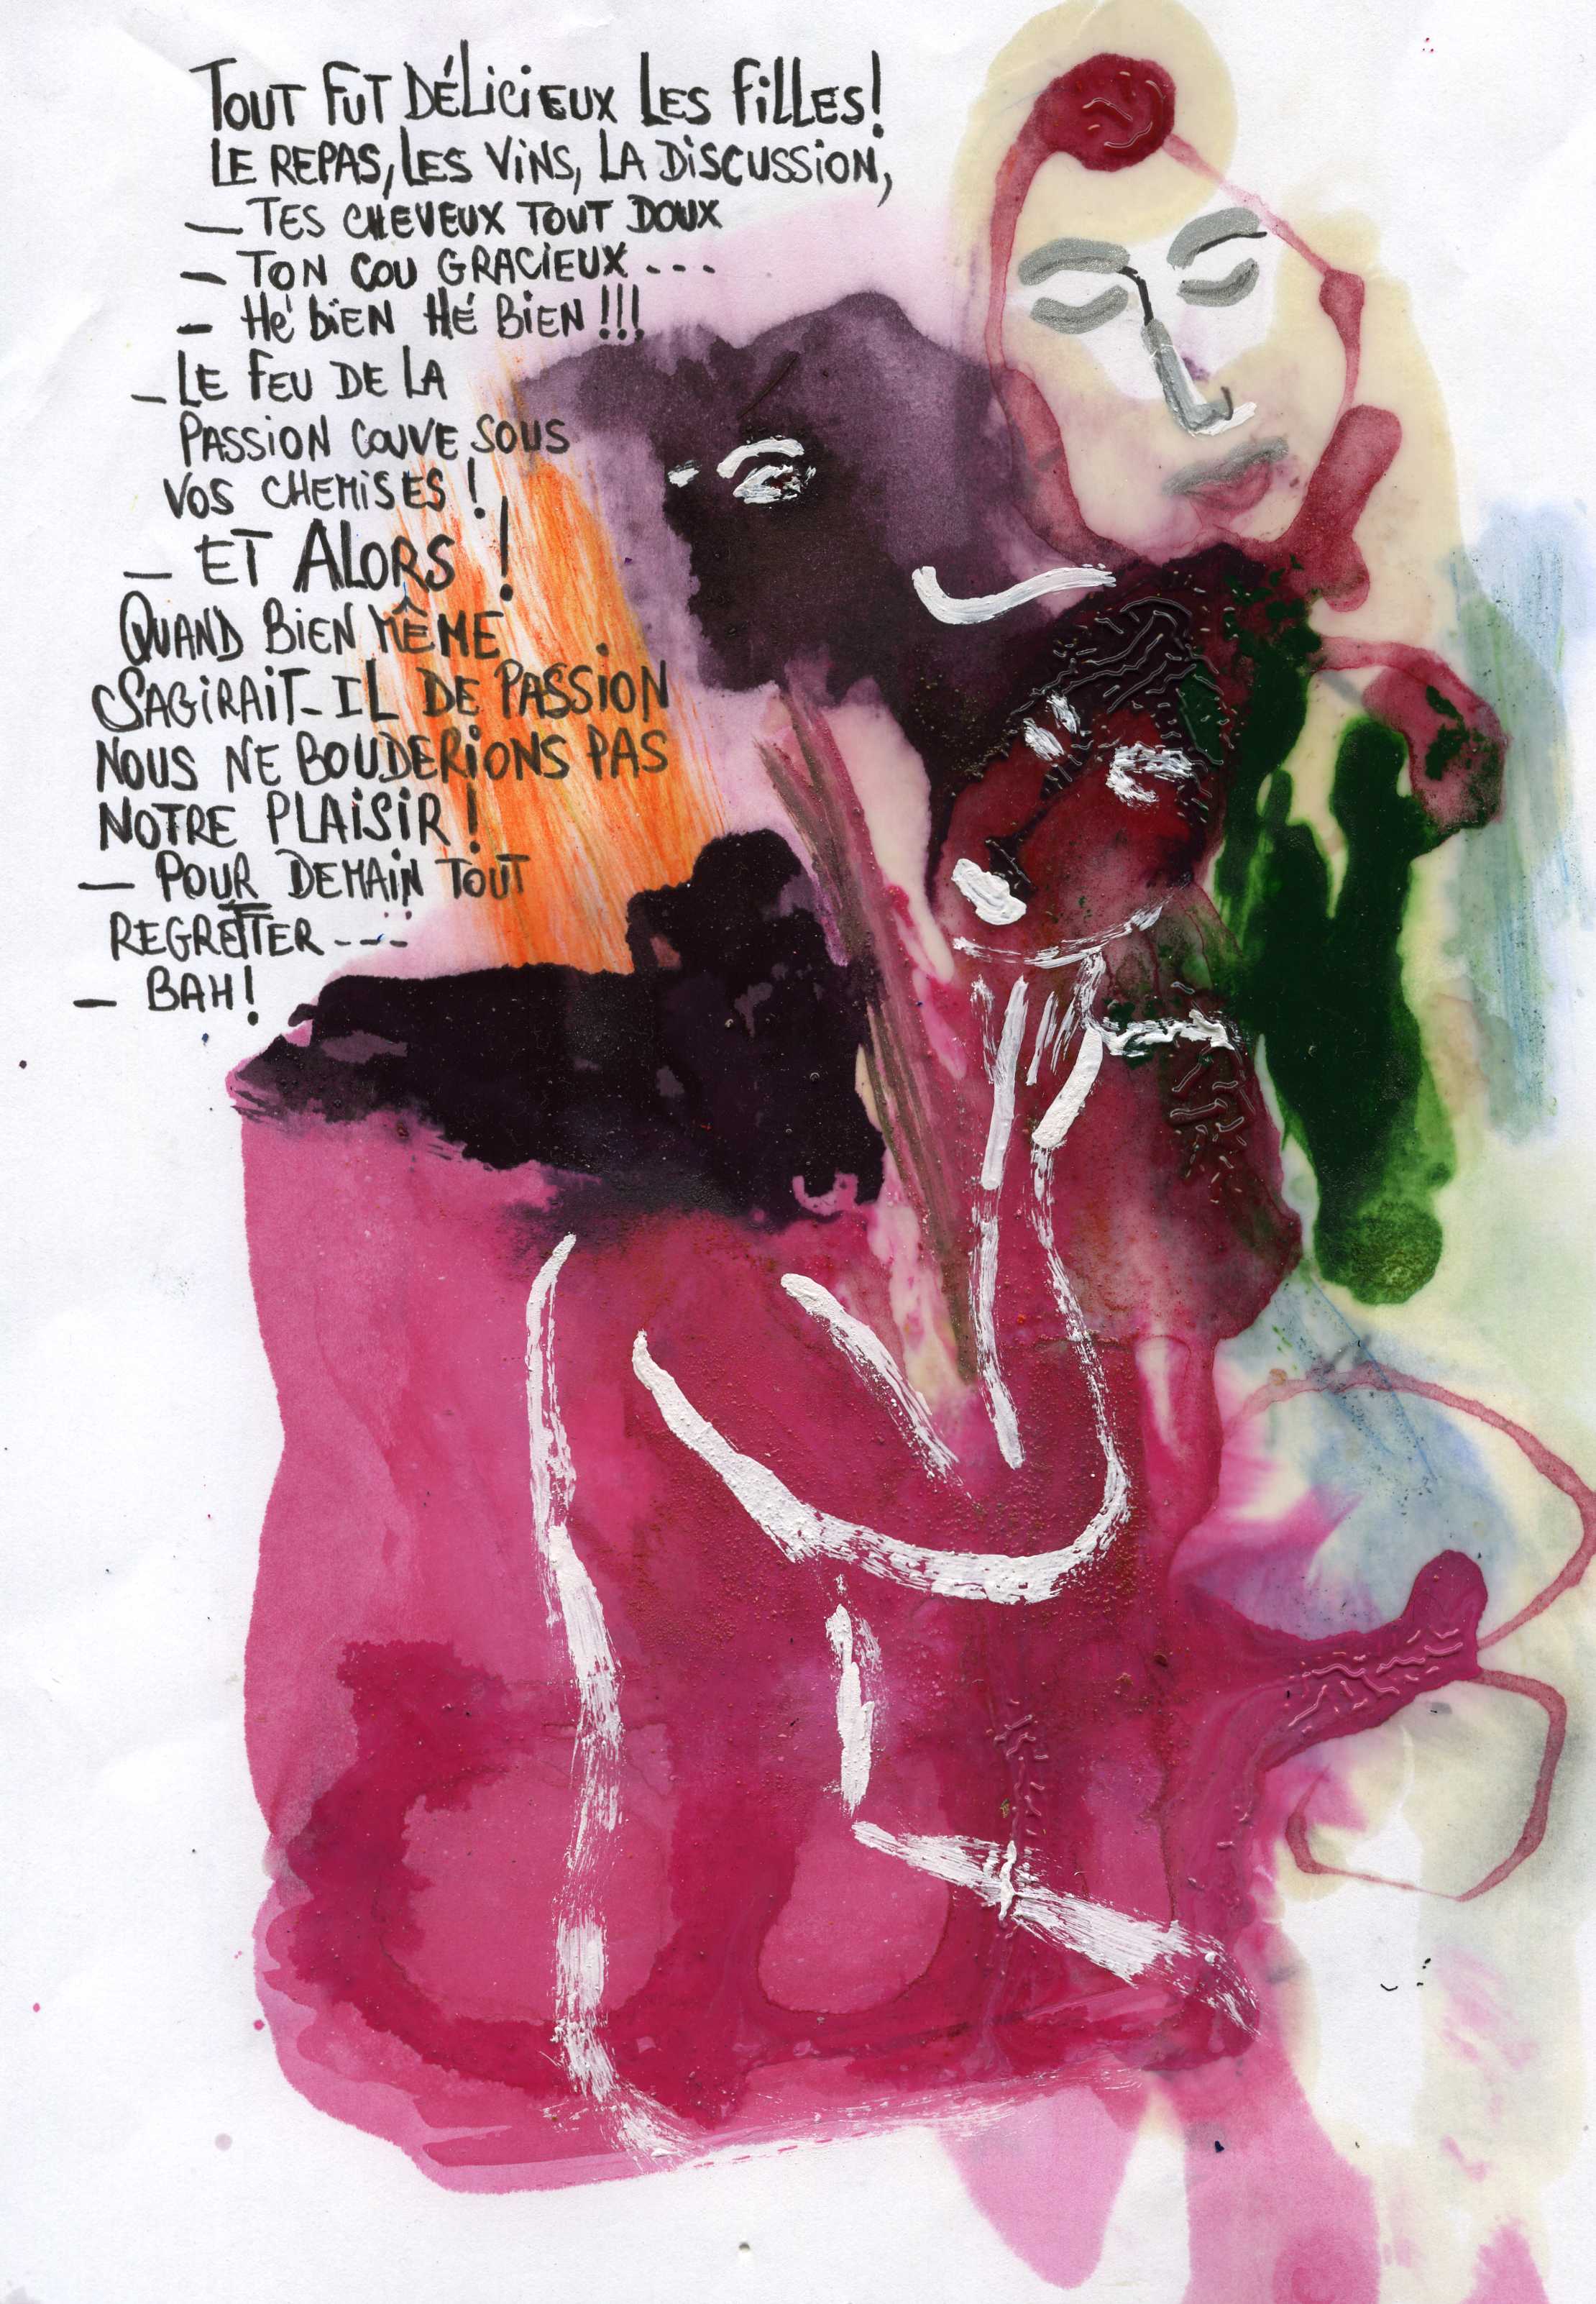 TOUT FUT DÉLICIEUX LES FILLES!
LE REPAS, LES VINS, LA DISCUSSION,
— TES CHEVEUX TOUT DOUX
— TON COU GRACIEUX ...
— HÉ BIEN HÉ BIEN !!!
— LE FEU DE LA
PASSION COUVE SOUS
VOS CHEMISES !
— ET ALORS !
QUAND BIEN MÊME
SAGIRAIT-IL DE PASSION
NOUS NE BOUDERIONS PAS
NOTRE PLAISIR !
— POUR DEMAIN TOUT
REGRETTER ---
— BAH!